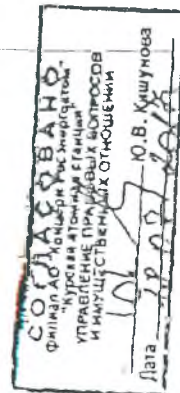 СОГЛАСОВАНО
филиал АО "Концерн Росэнергоатом"
"Курская атомная станция"
УПРАВЛЕНИЕ ПРАВОВЫХ ВОПРОСОВ
И ИМУЩЕСТВЕННЫХ ОТНОШЕНИЙ
Ю.В. Кошунова
Дата